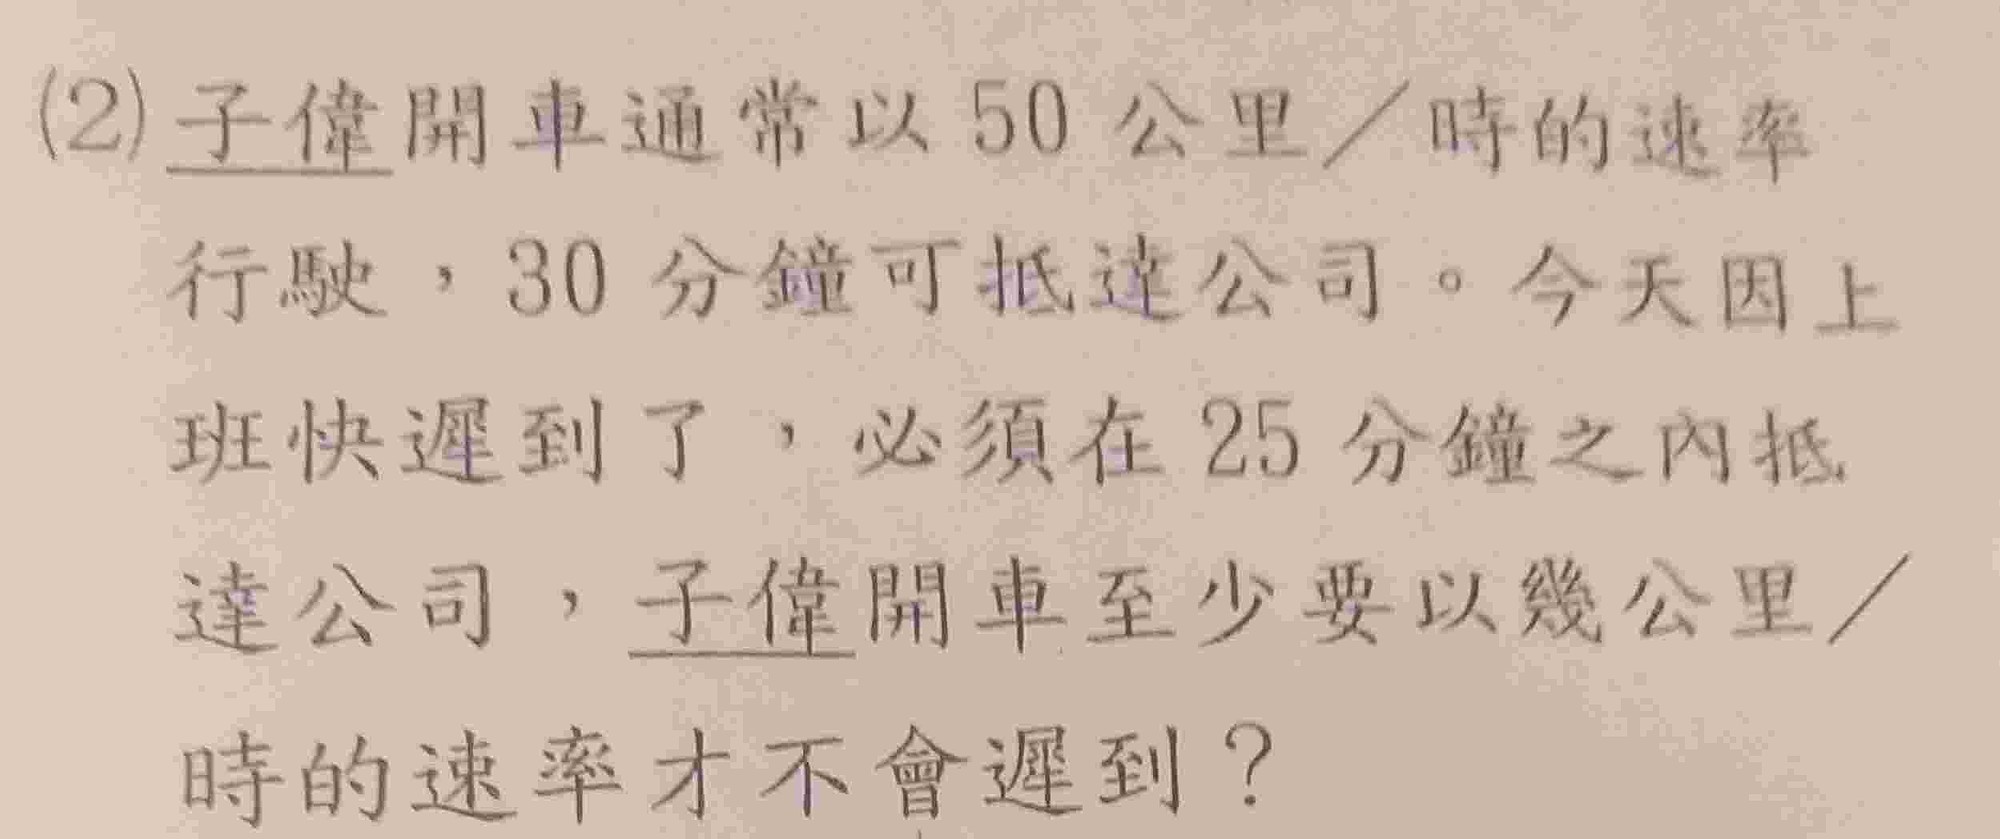 (2)子偉開車通常以 50 公里／時的速率
行駛，30 分鐘可抵達公司。今天因上
班快遲到了，必須在 25 分鐘之內抵
達公司，子偉開車至少要以幾公里／
時的速率才不會遲到？